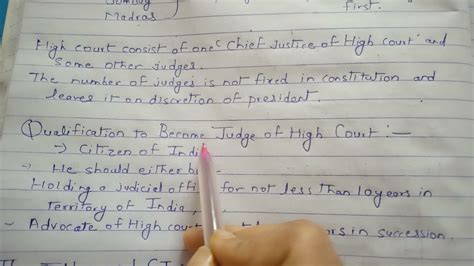 Bombay
Madras
first.
High court consist of one 'Chief Justice of High court' and
some other judges.
The number of judges is not fixed in constitution and
leaves it on discretion of president.
Qualification to Become Judge of High Court :-
→ Citizen of Indi
- He should either b
Holding a judicial offi for not less than 10 years in
territory of India,
- Advocate of High court rs in succession.